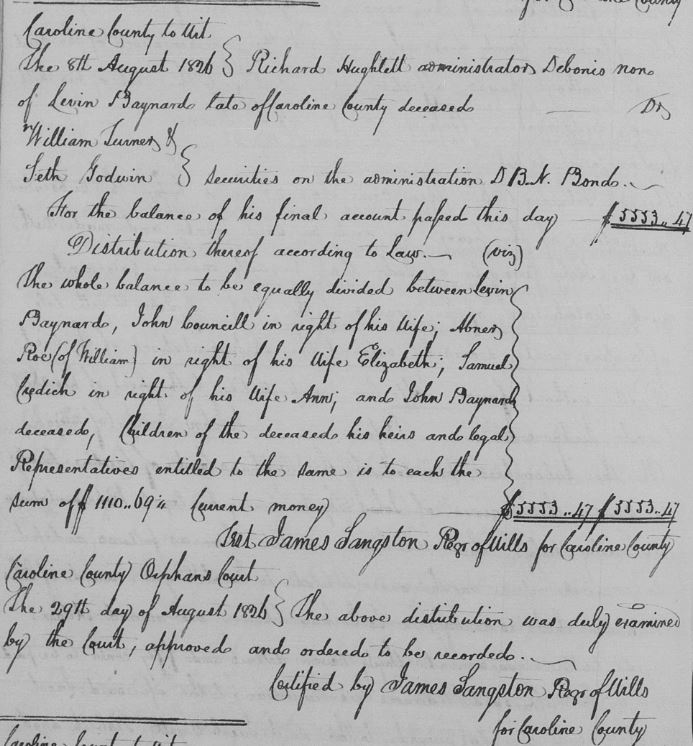 Caroline County to Wit
The 8th August 1826 } Richard Hughlett administrator Debonis non
of Levin Baynard late of Caroline County deceased — Dr
William Turner &
Seth Godwin } securities on the administration D B. N. Bond.
For the balance of his final account passed this day — $5553..47
Distribution thereof according to Law.— (viz)
The whole balance to be equally divided between Levin
Baynard, John Councill in right of his Wife; Abner
Roe (of William) in right of his Wife Elizabeth; Samuel
in right of his Wife Ann; and John Baynard
deceased, Children of the deceased his heirs and legal
Representatives entitled to the same is to each the
sum of $ 1110..69¼ Current money) — $5553..47 $5553..47
Test James Sangston Regr of Wills for Caroline County
Caroline County Orphans Court
The 29th day of August 1826 } The above distribution was duly examined
by the Court, approved and ordered to be recorded.—
Certified by James Sangston Regr of Wills
for Caroline County
Caroline County to Wit